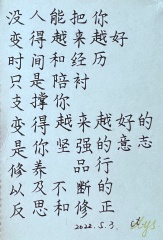 没人能把你
变得越来越好
时间和经历
只是陪衬
支撑你
变得越来越好的
是你坚强的意志
修养 品行
以及不断的
反思和修正
2022.5.3.